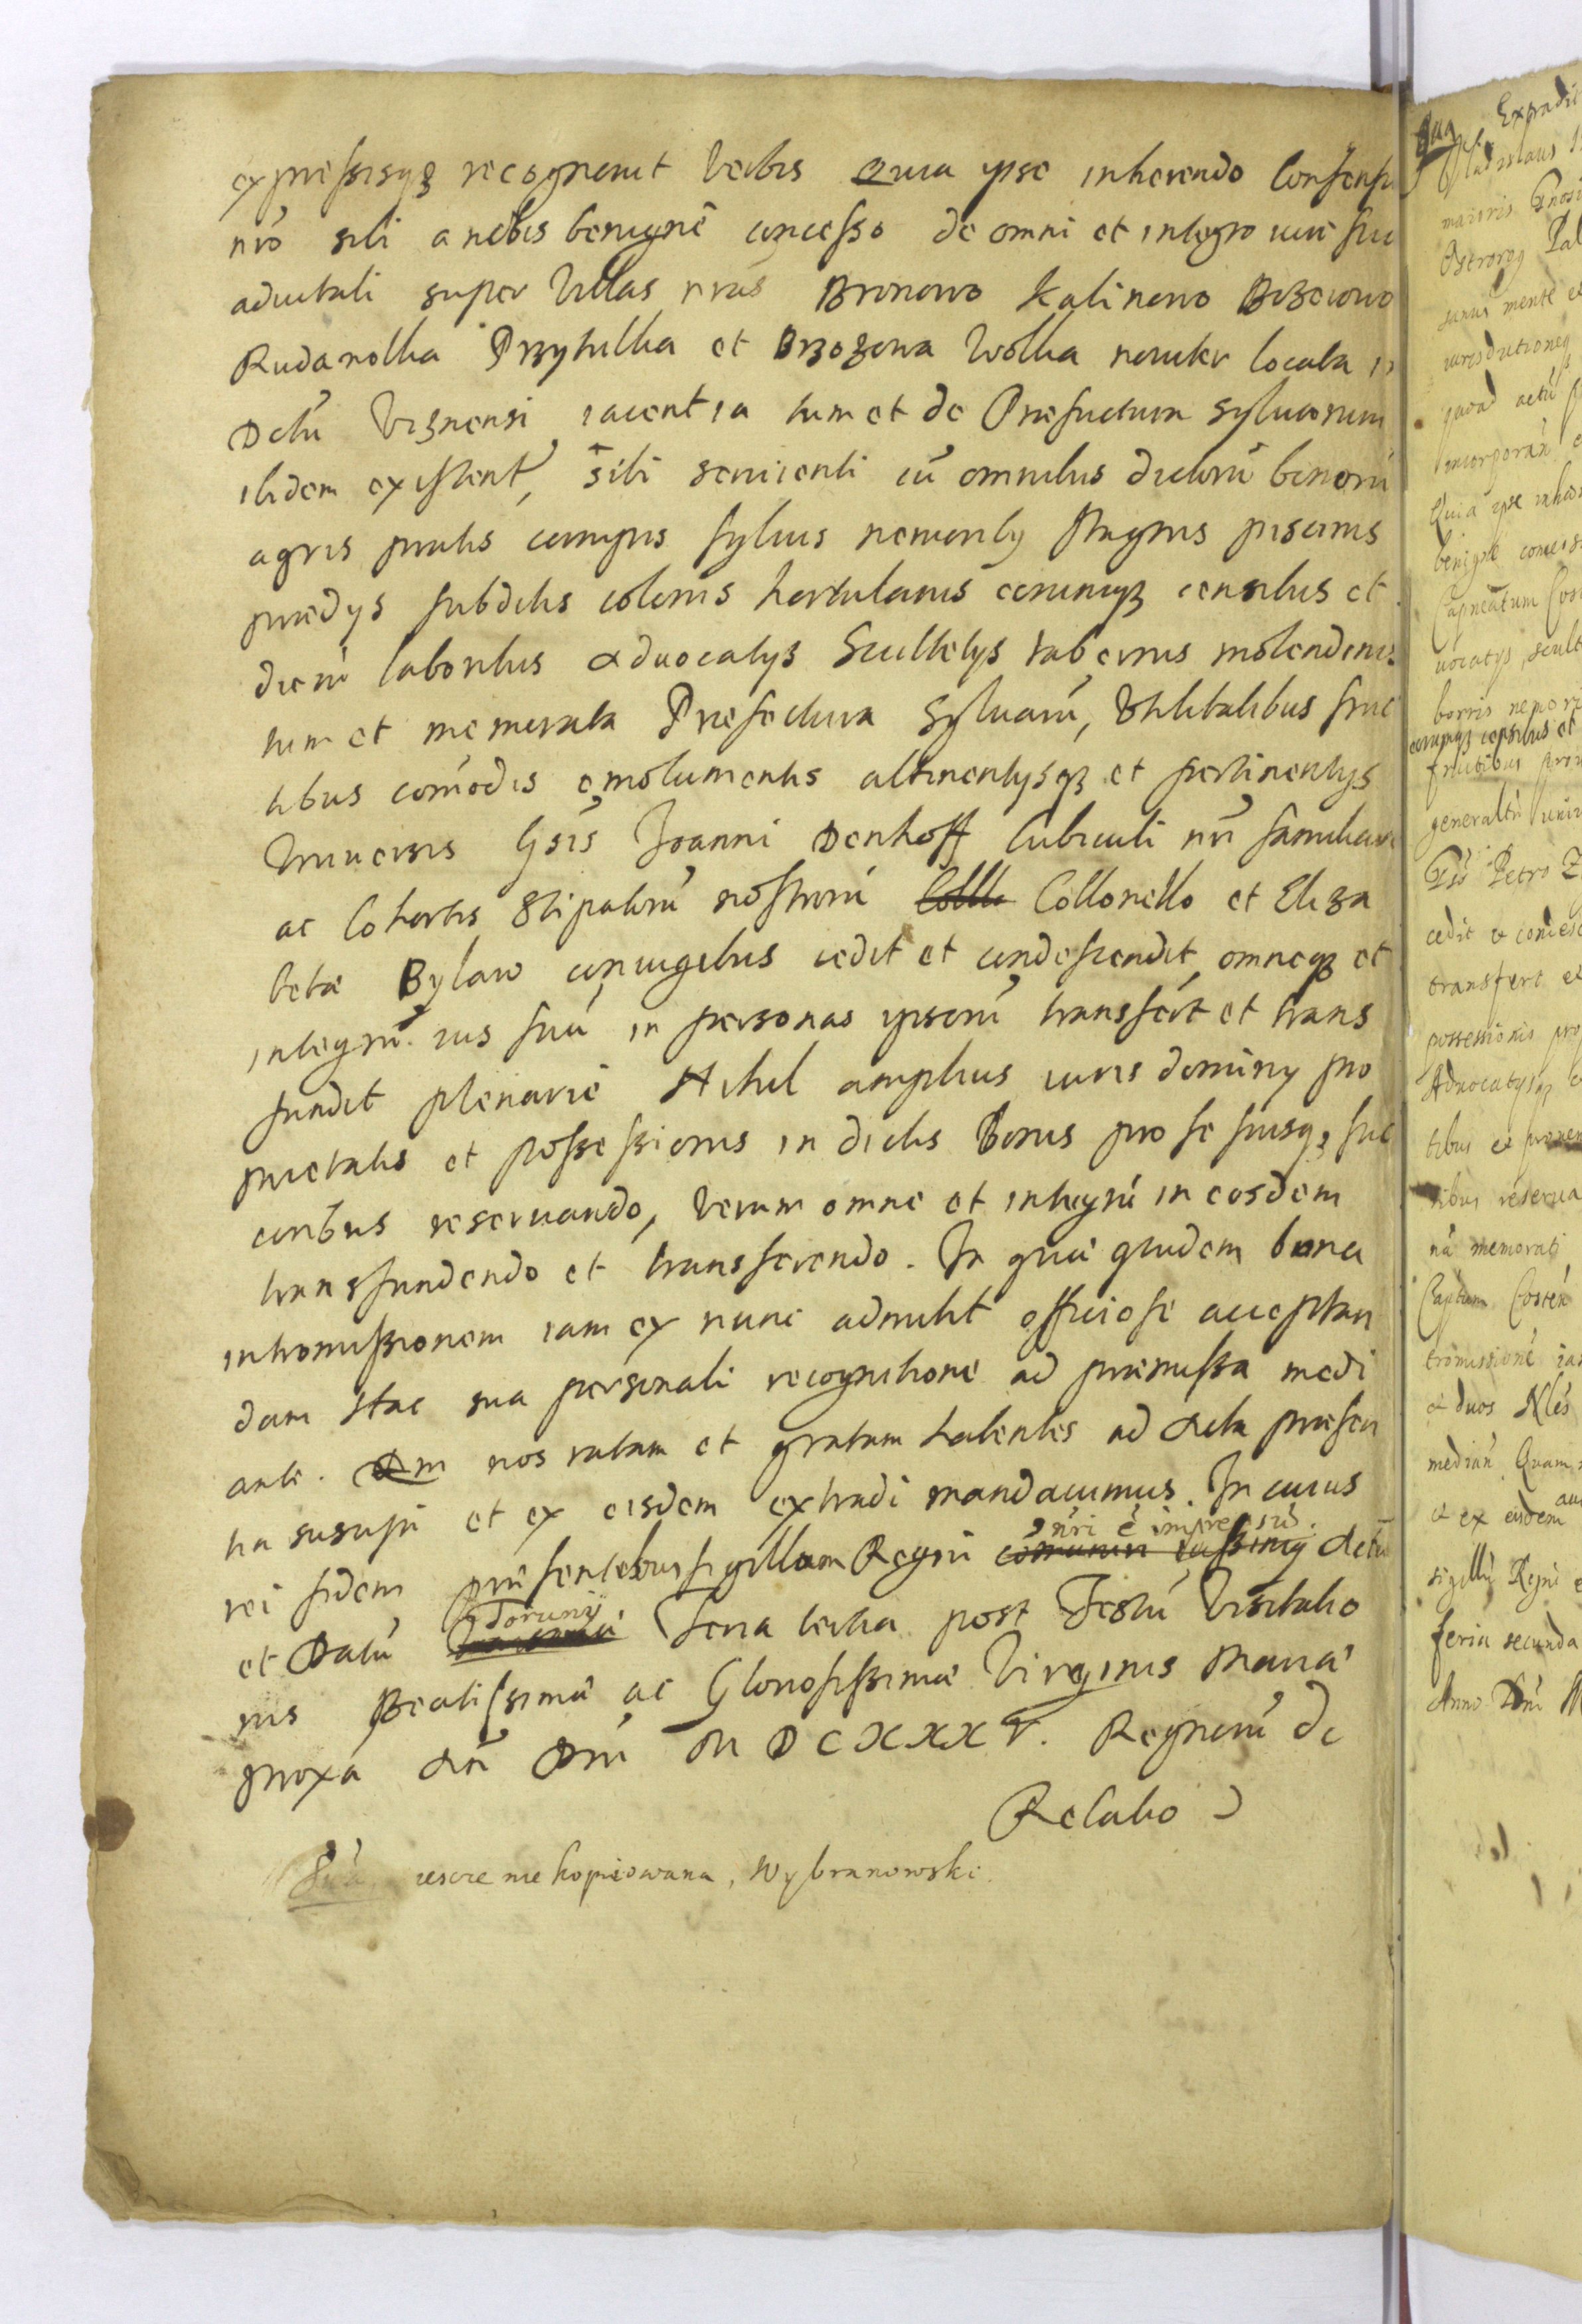 expressisqz recognovit verbis Quia ipse inherendo Consensu
nro sibi a nobis benigne concesso de omni et integro iure suo
aduitali super Villas nras Bronowo Kalinowo Bożeiowo
Rudawolka Przytulka et Brzozowa Wolka noviter locata in
Dctu Viznensi iacentia tum et de Praefectura Sylvarum
ibidem existent, sibi servienti cu omnibus dictoru bonoru
agris pratis campis sylvis nemoriby stagnis piscinis
praedys subditis colonis hortulanis eorumqz censibus et
dieru laboribus Advocatys Scultetys tabernis molendinis
tum et memorata Praefectura Sylvaru, Vtilitatibus fruc
tibus comodis emolumentis attinentysqz et pertinentys
Vniversis Gsis Joanni Denhoff Cubiculi nri familiari
ac Cohortis Stipatoru nostroru Collo Collonello et Eliza
betae Bylaw coniugibus cedit et condescendit omneqz et
integru ius suu in personas ipsoru transfert et trans
fundit plenarie Nihil amplius iuris dominy pro
prietatis et possessionis in dictis Bonis pro se suisqz suc
coribus reservando, Verum omne et integru in eosdem
transfundendo et transferendo. In quae quidem bona
intromissionem iam ex nunc admittit officiose acceptan
dam Hac sua personali recognitione ad praemissa medi
ante. Qm nos ratam et gratam habentes ad Acta praesen
tia suscipi et ex eisdem extradi mandavimus. In cuius
nri e impressu.
rei fidem praesentibus sigillum Regni comunin Actu
Torunij
et Datu feria tertia post Festu Visitatio
nis Beatissimae ac Gloriosissimae Virginis Mariae
proxa An Dni MDCXXXV. Regnoru de
Relatio
iescze nie kopiowana, Wybranowski.
Expradit
Vladislaus
maioris Gnosi
Ostrorog Pal
sanus mente et
iurisdictioneq
quoad actu
incorporan
Quia ipse inhaer
benigne concess
Capneatum Cos
vocatys, scult
borris nemori
eorumqz censibus et
fructibus prov
generaltr univ
Gso Petro Z
cedit et condesc
transfert et
possessionis pro
Advocatysqz
tibus et proven
ribus reserva
na memorati
Captum Costen
tromissione iam
et duos Nles
median Quam
et ex eisdem
sigillu Regni e
feria secunda
Anno Dni M